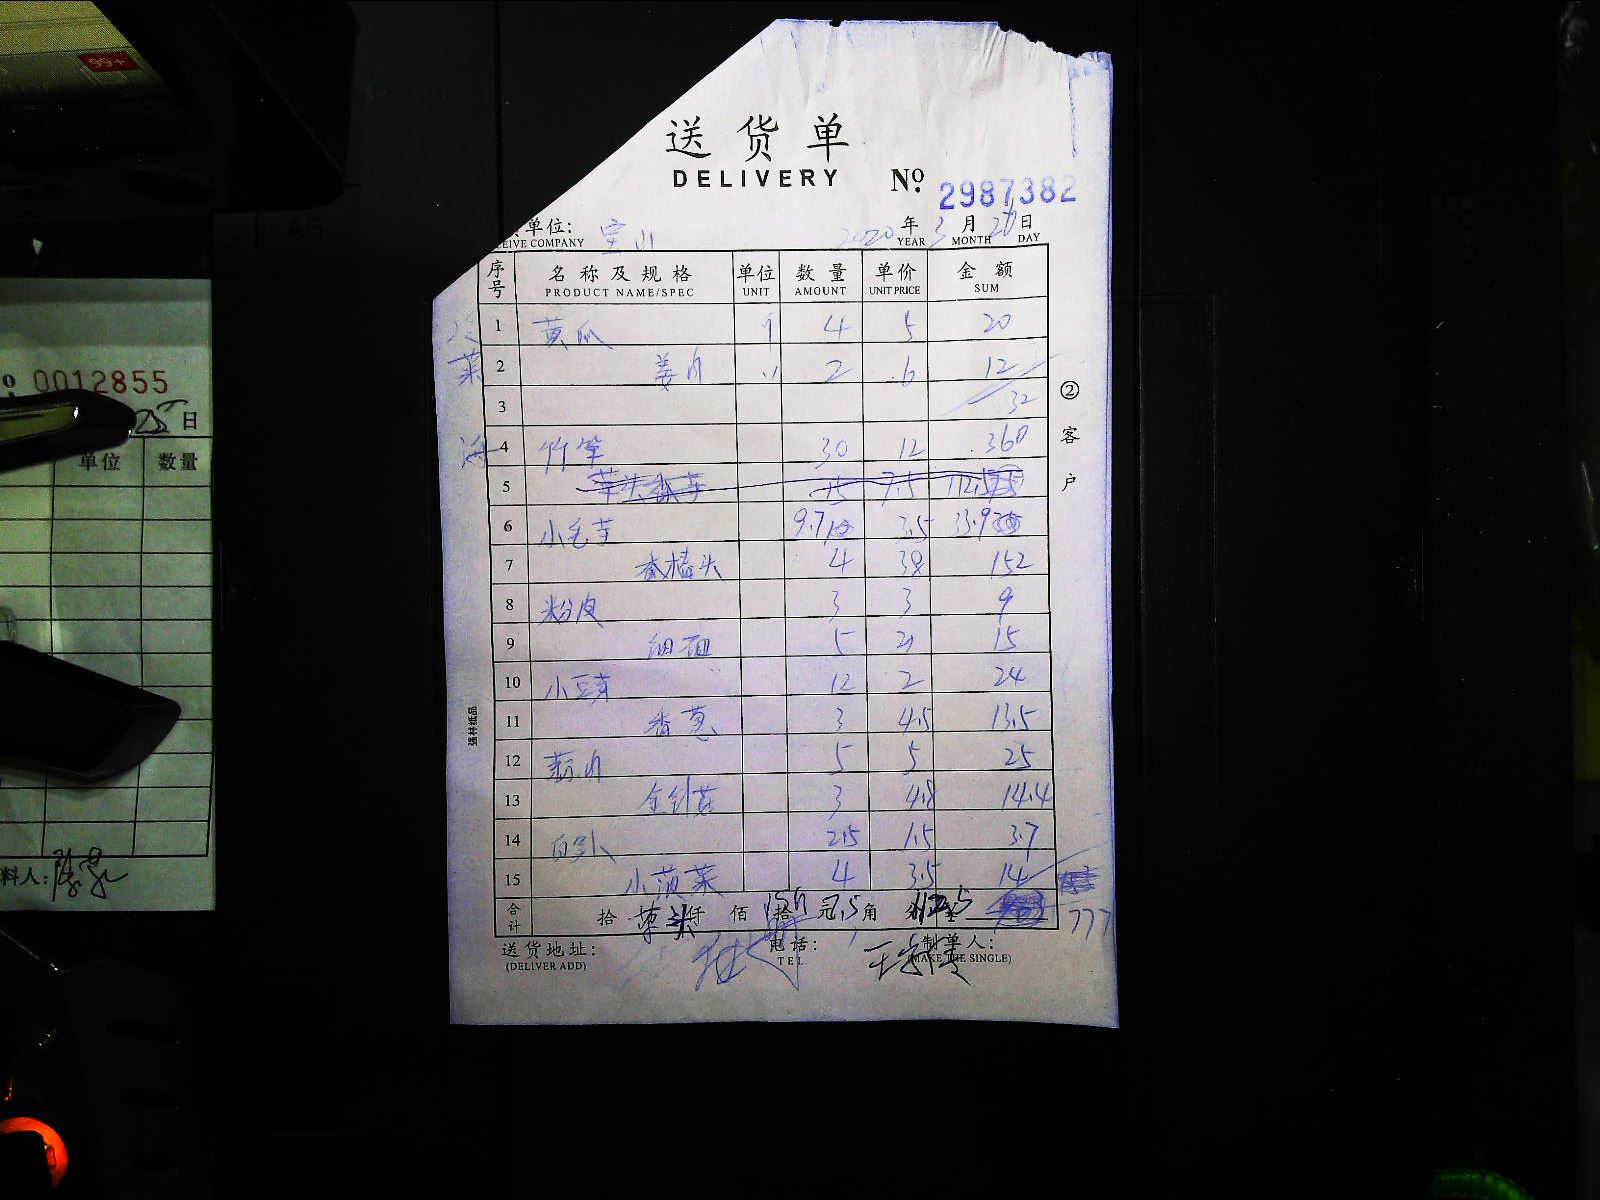 99+
送货单
DELIVERY № 2987382
单位: 宝山 2020 年 3 月 日
EIVE COMPANY YEAR MONTH DAY
序号 名称及规格 单位 数量 单价 金额
PRODUCT NAME/SPEC UNIT AMOUNT UNIT PRICE SUM
1 黄瓜 4 5 20
菜 2 姜片 2 6 12
3 32
4 竹笋 30 12 360
5 7.5 112.5
6 小毛芋 9.7 3.5 33.9
7 香椿头 4 38 152
8 粉皮 3 3 9
9 细面 5 3 15
10 小豆芽 12 2 24
11 香葱 3 4.5 13.5
12 5 5 25
13 金针菇 3 4.8 14.4
14 2.5 1.5 3.7
15 小菠菜 4 3.5 14
合计 拾 仟 佰 拾 元 7.5 角 112.5 777
送货地址: 电话: 制单人:
(DELIVER ADD) TEL (MAKE THE SINGLE)
② 客户
强林纸品
0012855
25 日
单位 数量
料人: